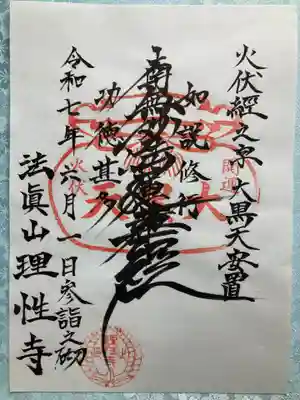 火伏經之宗大黒天安置
如説修行
南無妙法蓮華経
功徳甚多
令和七年六月一日参詣之砌
法眞山理性寺
開運
大黒天
火伏